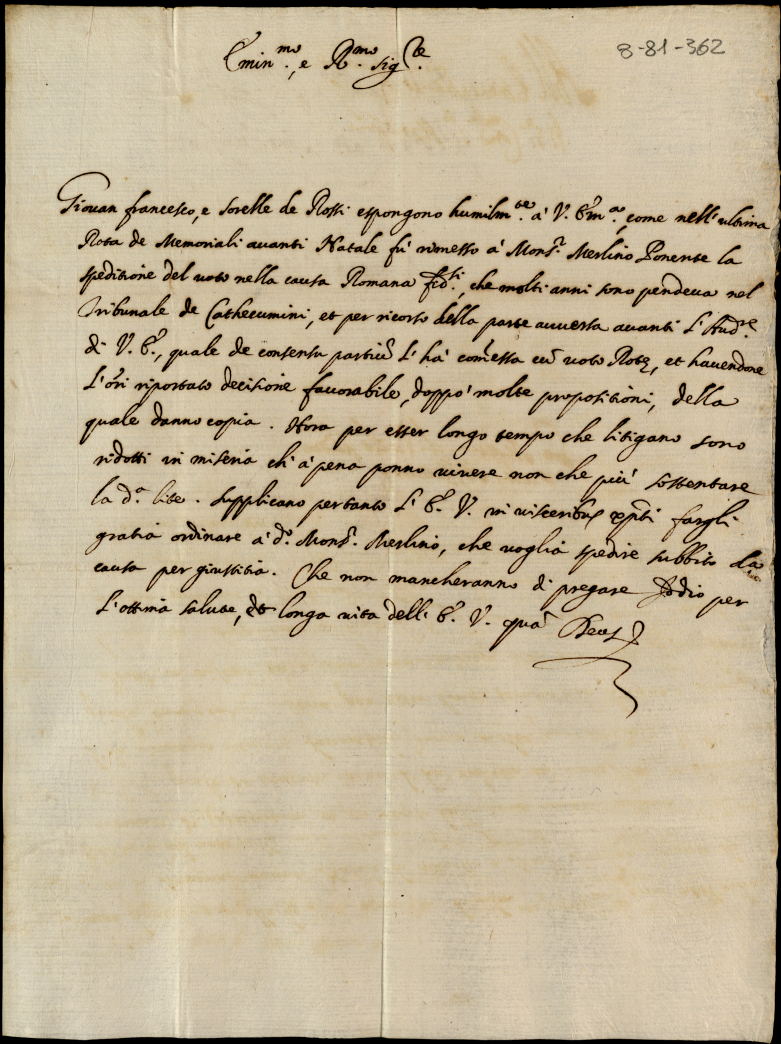 8-81-362
Emin.mo, e R.mo Sig.re
Giovan francesco, e Sorelle de Rossi espongono humilm.te à V. Em.a, come nell'ultima
Rota de Memoriali avanti Natale fù rimesso à Mons.r Merlino Ponente la
speditione del voto nella causa Romana che molti anni sono pendeva nel
Tribunale de Cathecumini, et per ricorso della parte avversa avanti l'Aud.re
di V. E., quale de consensu partiũ l'hà com̃essa cũ voto Rotę, et havendone
l'õri riportato decisione favorabile, doppo' molte propositioni, della
quale danno copia. Hora per esser longo tempo che litigano sono
ridotti in miseria ch'à pena ponno vivere non che più sostentare
la d.a lite. Supplicano pertanto l'E. V. in visceribus xp̃ti fargli
gratia ordinare à d.o Mons.r Merlino, che voglia spedire subbito la
causa per giustitia. Che non mancheranno di pregare Iddio per
l'ottima salute, et longa vita dell'E. V. quã Deus